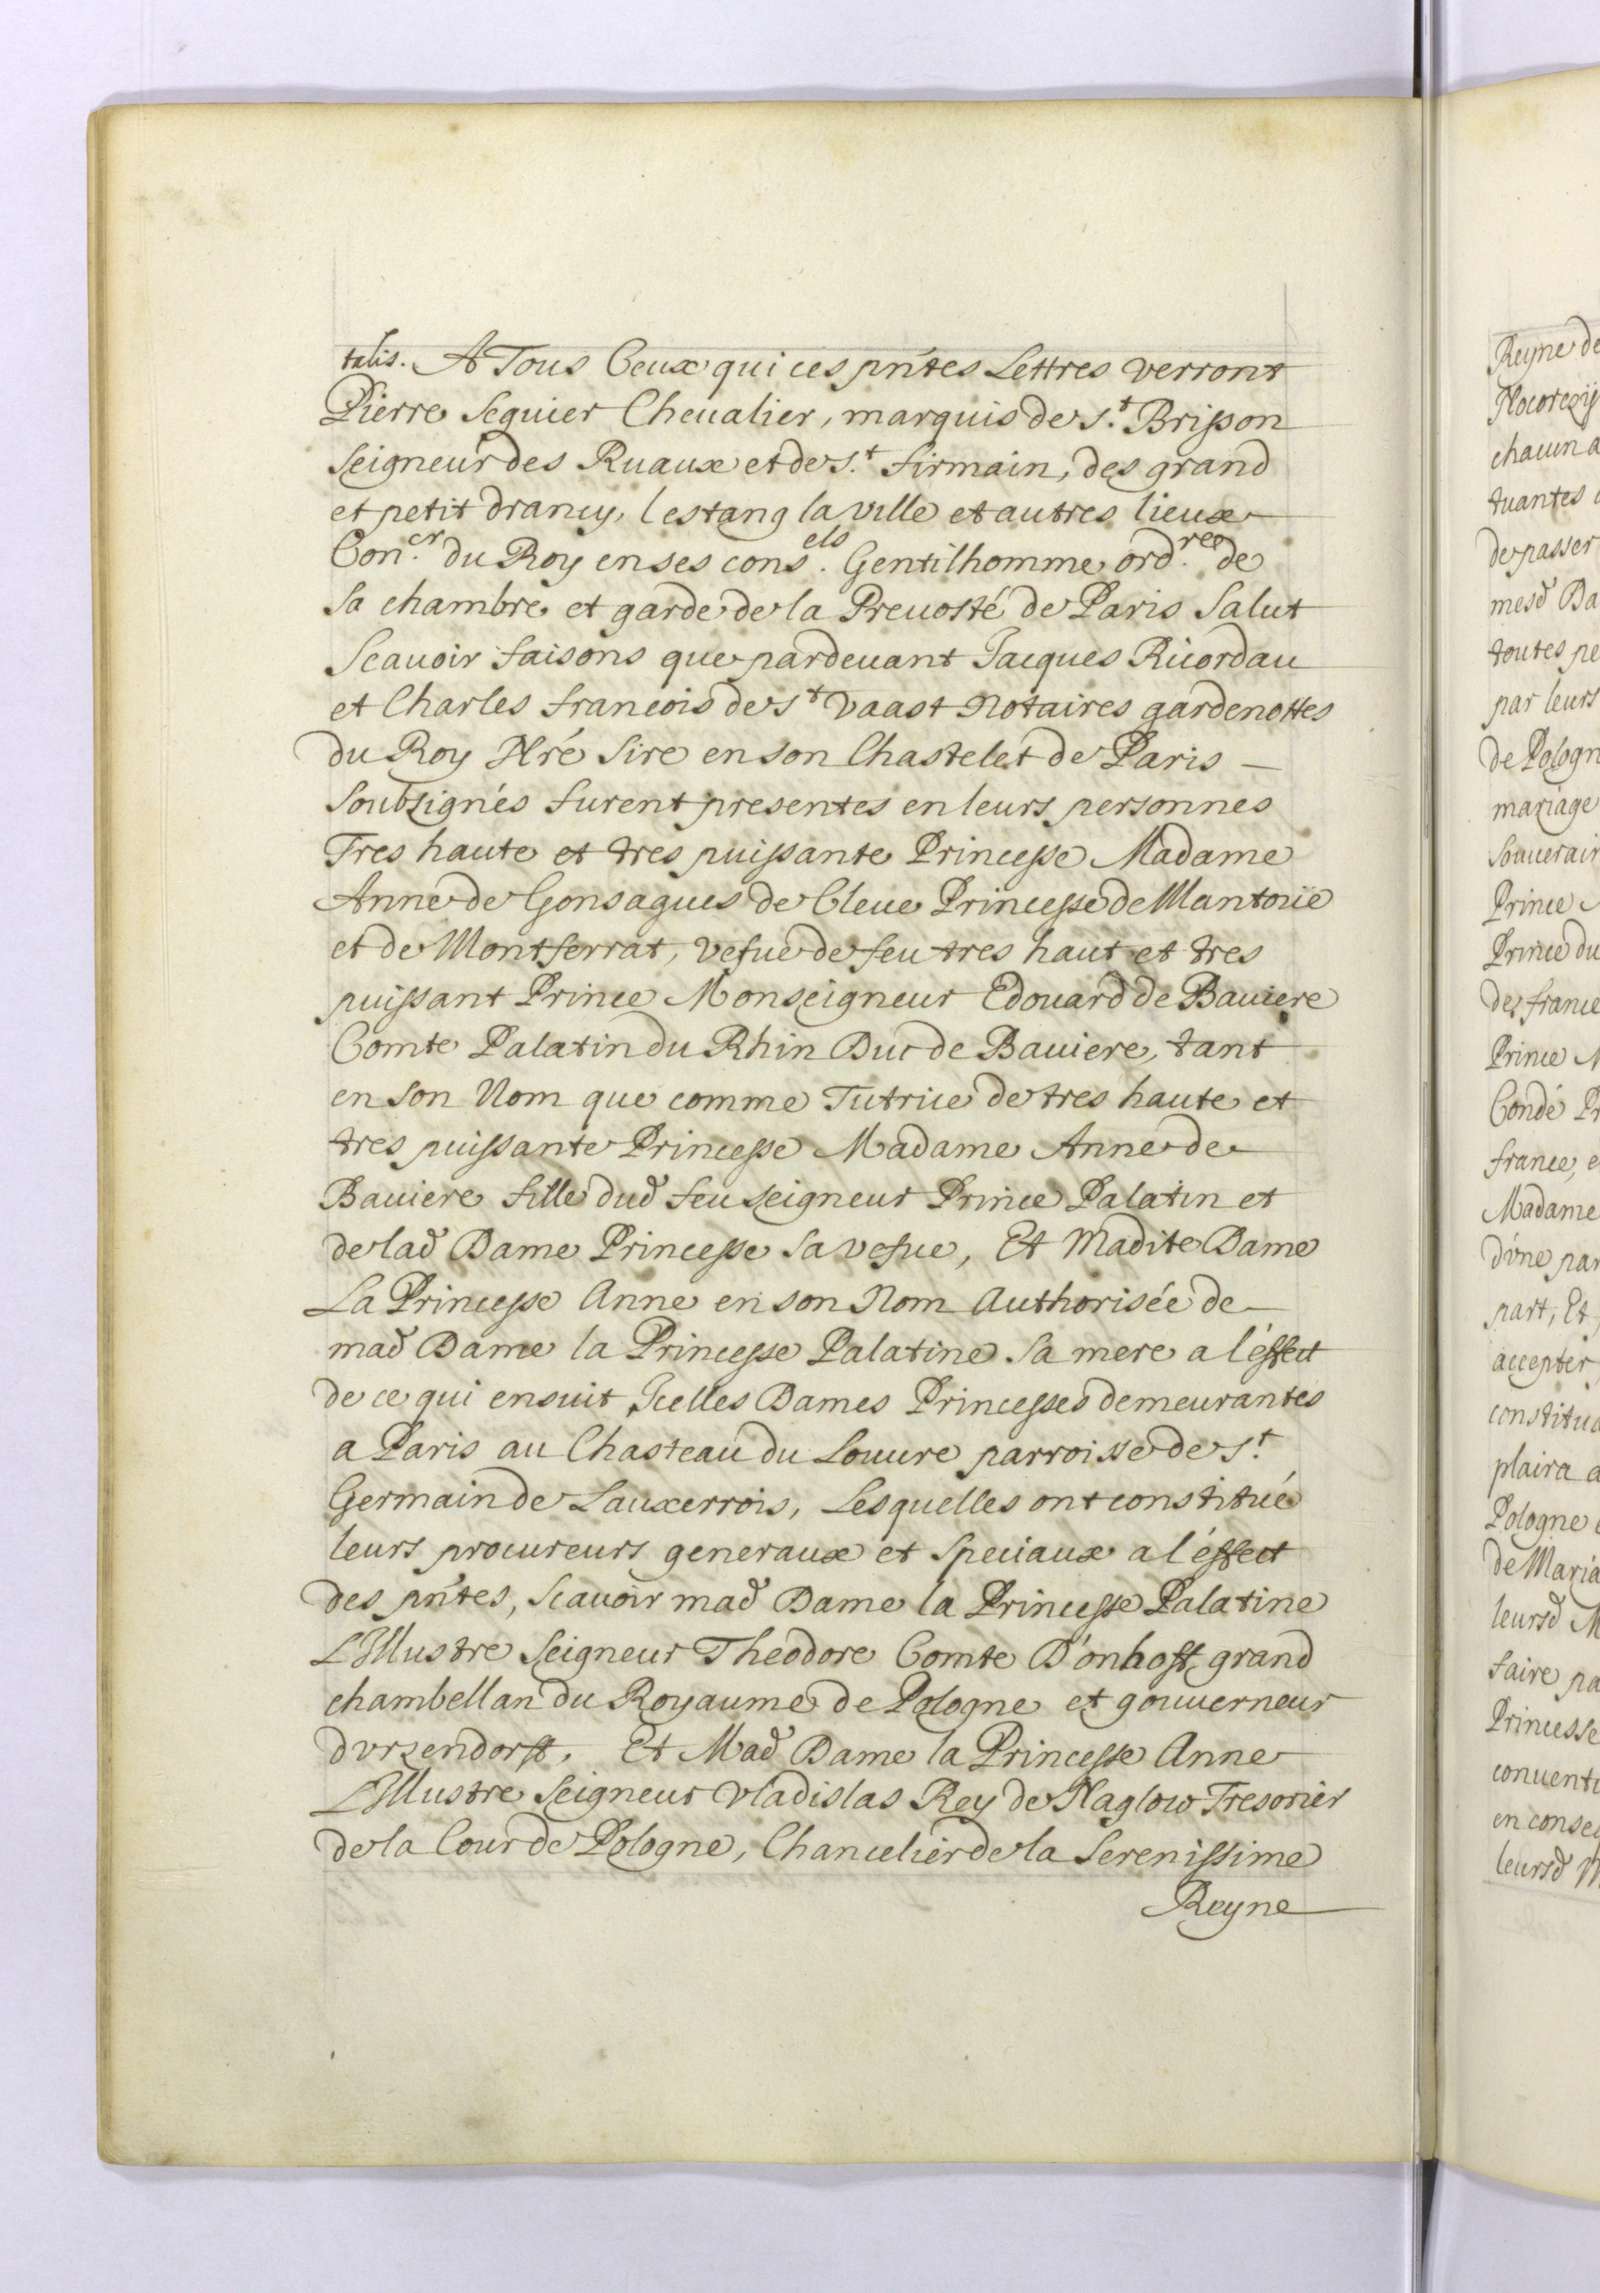 talis. A Tous Ceux qui ces pñtes Lettres verront
Pierre Seguier Cheualier, marquis de S.t Brisson
Seigneur des Ruaux et de S.t firmain, des grand
et petit drancy, lestang la ville et autres lieux
Con.er du Roy en ses cons.els Gentilhomme ord.re de
Sa chambre et garde de la Preuosté de Paris Salut
Scauoir faisons que pardeuant Jacques Ricordau
et Charles francois de St Vaast Notaires gardenottes
du Roy Nré Sire en son Chastelet de Paris —
Soubsignés furent presentes en leurs personnes
Tres haute et tres puissante Princesse Madame
Anne de Gonsagues de Cleue Princesse de Mantoüe
et de Montferrat, vefue de feu tres haut et tres
puissant Prince Monseigneur Edouard de Bauiere
Comte Palatin du Rhin Duc de Bauiere, tant
en son Nom que comme Tutrice de tres haute et
tres puissante Princesse Madame Anne de
Bauiere fille dud feu seigneur Prince Palatin et
de lad Dame Princesse sa vefue, Et Madite Dame
La Princesse Anne en son Nom Authorisée de
mad Dame la Princesse Palatine Sa mere a l'éffect
de ce qui ensuit, Jcelles Dames Princesses demeurantes
a Paris au Chasteau du Louure parroisse de S.t
Germain de Lauxerrois, Lesquelles ont constitué
leurs procureurs generaux et Speciaux a l'éffect
des pñtes, Scauoir mad Dame la Princesse Palatine
L'Illustre Seigneur Theodore Comte D'onhoff, grand
chambellan du Royaume de Pologne et gouuerneur
dvrzendorff. Et Mad Dame la Princesse Anne
L'Illustre Seigneur Vladislas Rey de Naglow Tresorier
de la Cour de Pologne, Chancelier de la Serenissime
Reyne
Reyne de
chacun a
tuantes
de passer
mesd Da
toutes pe
par leurs
de Pologn
mariage
Souuerain
Prince
Prince du
des france
Prince M
Condé Pr
france, e
Madame
d'vne par
part, Et
accepter
constitua
plaira a
Pologne
de Maria
leursd M
faire pa
Princesse
conuenti
en conseq
leursd